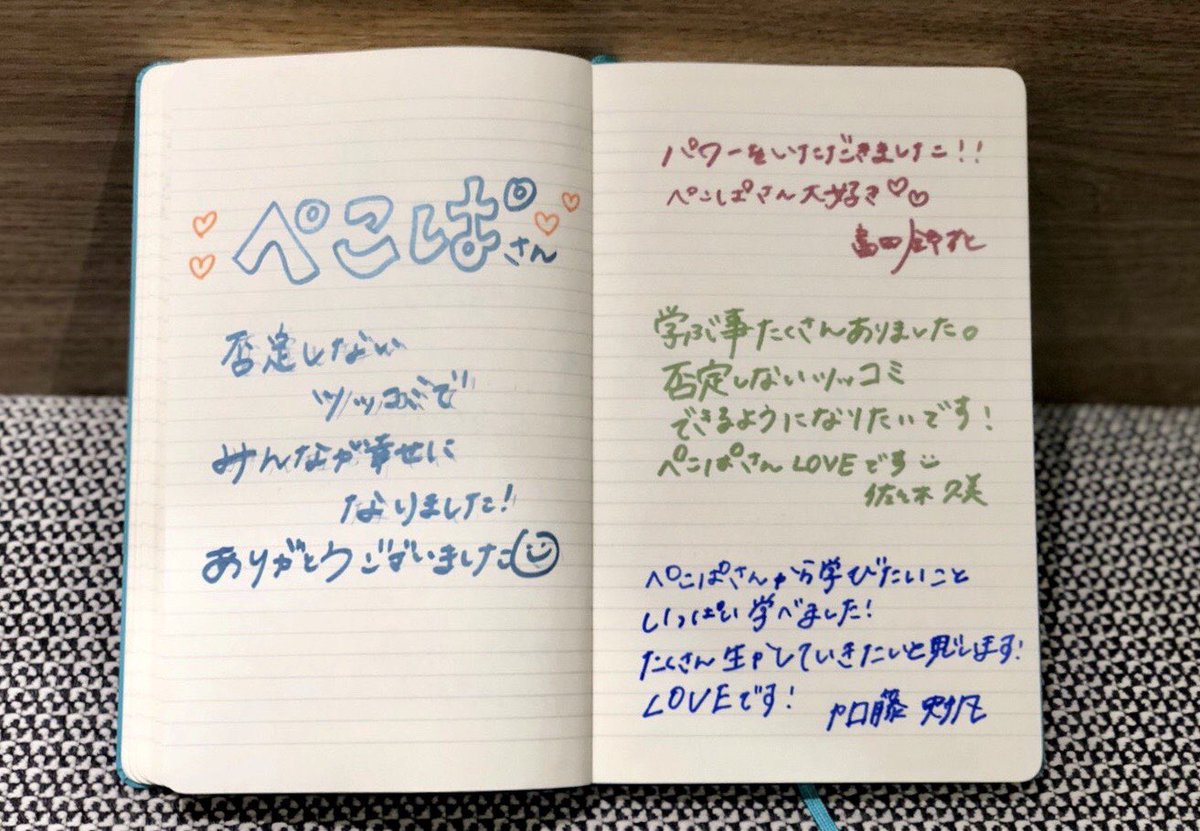 ぺこぱさん
否定しない
ツッコミで
みんなが幸せに
なりました!
ありがとうございました
パワーをいただきました!!
ぺこぱさん大好き♡♡
学ぶ事たくさんありました。
否定しないツッコミ
できるようになりたいです!
ぺこぱさんLOVEです
佐々木久美
ぺこぱさんから学びたいこと
いっぱい学べました!
たくさん生かしていきたいと思います!
LOVEです!
加藤史帆